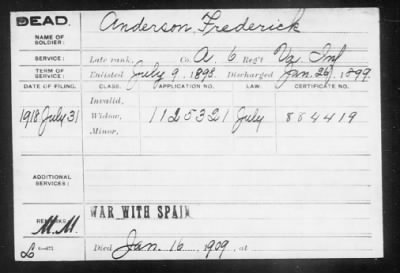 DEAD.
NAME OF SOLDIER: Anderson, Frederick
SERVICE: Late rank, Co. A, 6 Reg't Va. Inf
TERM OF SERVICE: Enlisted July 9, 1898. Discharged Jan. 26, 1899.
DATE OF FILING. CLASS. APPLICATION NO. LAW. CERTIFICATE NO.
Invalid,
1918 July 31 Widow, 1125321 July 884419
Minor,
ADDITIONAL SERVICES:
REMARKS: M.M. WAR WITH SPAIN
Died Jan. 16 1909, at